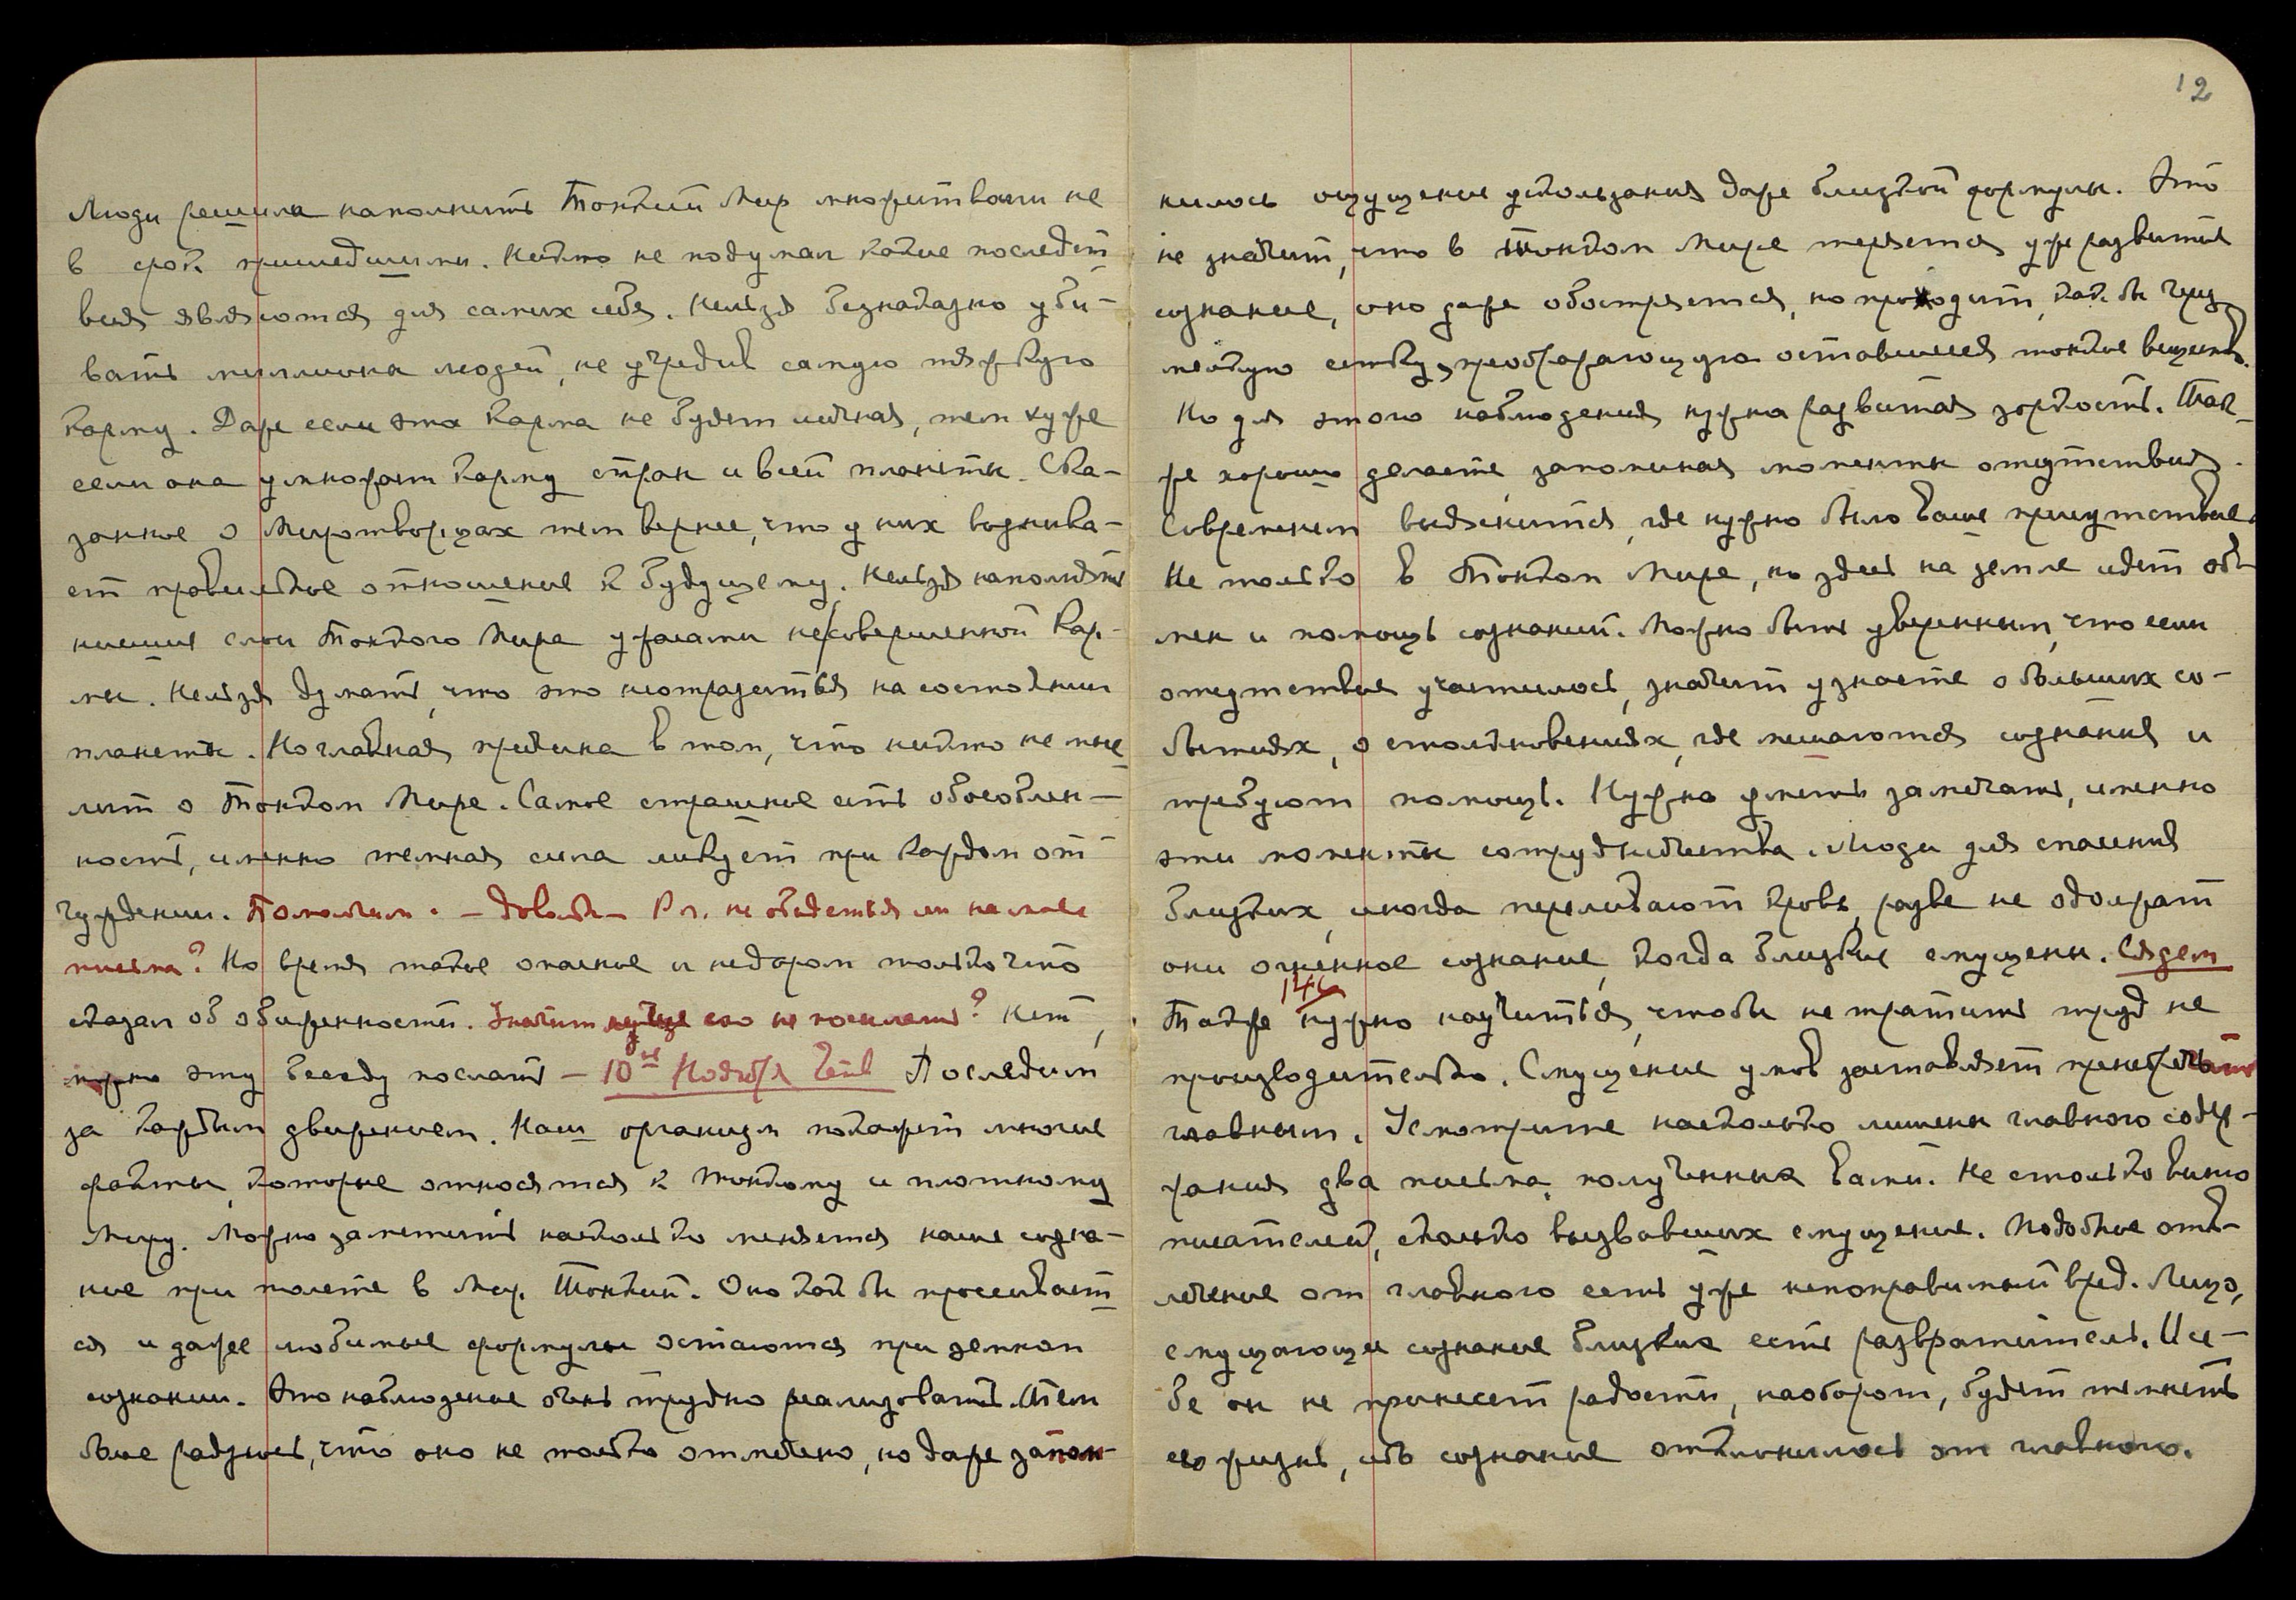 12
Люди решила наполнить Тонкий Мир множествами не
в срок пришедшими. Никто не подумал какие последст
вия являются для самих себя. Нельзя безнаказно уби-
вать миллиона людей, не учредив самую тяжкую
Карму. Даже если эта Карма не будет личная, тем хуже
если она умножает Карму стран и всей планеты. Ска-
занное о Миротворцах тем вернее, что у них возника-
ет правильное отношение к будущему. Нельзя наполнять
низшие слои Тонкого Мира ужасами несовершенной Кар-
мы. Нельзя думать, что это неотразиться на состоянии
планеты. Но главная причина в том, что никто не мыс
лит о Тонком Мире. Самое страшное есть обособлен-
ность, именно темная сила ликует при каждом от
чуждении. Помолчим. – Довольно – Вл. не обидеться ли на мои
письма? Но время такое опасное и недаром только что
сказал об обиженности. Значит лучше его не посылать? Нет,
нужно эту беседу послать – 10го Ноября Четв Последим
за каждым движением. Наш организм покажет многие
факты, которые относятся к тонкому и плотному
Миру. Можно заметить насколько меняется наше созна-
ние при полете в Мир Тонкий. Оно как бы просеивает
ся и даже любимые формулы остаются при земном
сознании. Это наблюдение очень трудно реализовать. Тем
более радуюсь, что оно не только отмечено, но даже запом-
нилось ощущение ускользания даже близкой формулы. Это
не значит, что в тонком Мире теряется уже развитие
сознание, оно даже обостряется, но проходит, как бы через
некую сетку, преображающую оставшееся тонкое вещество.
Но для этого наблюдения нужна развитая зоркость. Так-
же хорошо делаете запоминая моменты отсутствия.
Современем выяснится, где нужно было Ваше присутствие.
Не только в Тонком Мире, но здесь на земле идет об-
мен и помощь сознаний. Можно быть уверенным, что если
отсутствие участилось, значит узнаете о больших со-
бытиях, о столкновениях, где мешаются сознания и
требуют помощь. Нужно уметь замечать, именно
эти моменты сотрудничества. Люди для спасения
близких, иногда переливают кровь, разве не одолжат
они огненное сознание, когда близкие смущены. Сядем
146
Также нужно научиться, чтобы не тратить труд не
производительно. Смущение умов заставляет пренебречь
главным. Усмотрите насколько лишены главного содер-
жания два письма, полученных Вами. Не столько вина
писателей, сколько вызвавших смущение. Подобное отв-
лечение от главного есть уже непоправимый вред. Лицо,
смущающее сознание близких есть развратитель. И се-
бе он не принесет радости, наоборот, будет темнеть
его жизнь, ибо сознание отклонилось от главного.